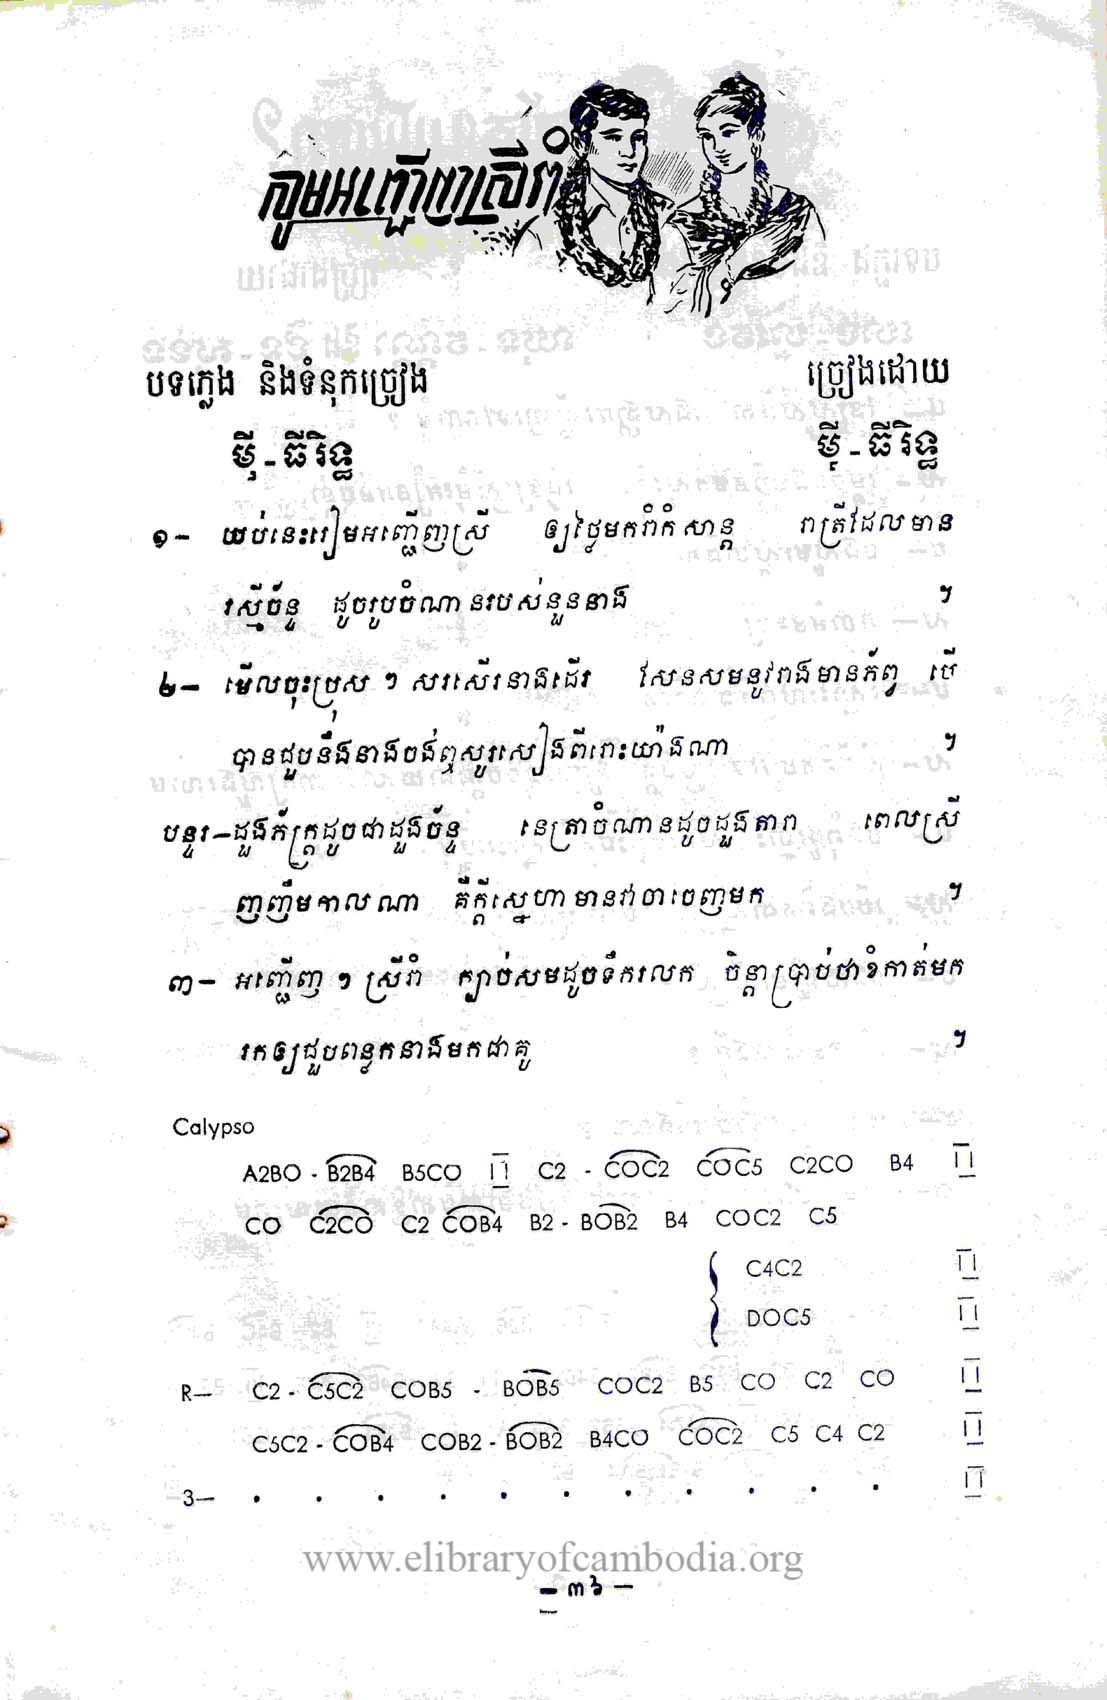 សូមអញ្ជើញស្រីរាំ
បទភ្លេង និងទំនុកច្រៀង ច្រៀងដោយ
ម៉ី - ធីរិទ្ធ ម៉ី - ធីរិទ្ធ
១— យប់នេះរៀមអញ្ជើញស្រី ឲ្យថ្លៃមករាំកំសាន្ត រាត្រីដែលមាន
រស្មីច័ន្ទ ដូចរូបចំណានរបស់នួននាង ។
២— មើលចុះប្រុស ៗ សរសើរនាងដើរ សែនសមនូវរាងមានភ័ព្វ បើ
បានជួបនឹងនាងចង់ឮសូរសៀងពីរោះយ៉ាងណា ។
បន្ទរ—ដួងភ័ក្ត្រដូចជាដួងច័ន្ទ នេត្រាចំណានដូចដួងតារា ពេលស្រី
ញញឹមកាលណា គឺក្តីស្នេហាមានវាចាចេញមក ។
៣— អញ្ជើញ ៗ ស្រីរាំ ក្បាច់សមដូចទឹករលក ចិន្តាប្រាប់ថាខំកាត់មក
រកឲ្យជួបពន្លកនាងមកជាគូ ។
Calypso
A2BO - B2B4 B5CO C2 - COC2 COC5 C2CO B4
CO C2CO C2 COB4 B2 - BOB2 B4 COC2 C5
C4C2
DOC5
R— C2 - C5C2 COB5 - BOB5 COC2 B5 CO C2 CO
C5C2 - COB4 COB2 - BOB2 B4CO COC2 C5 C4 C2
3— . . . . . . . . . . .
www.elibraryofcambodia.org
— ៣៦ —